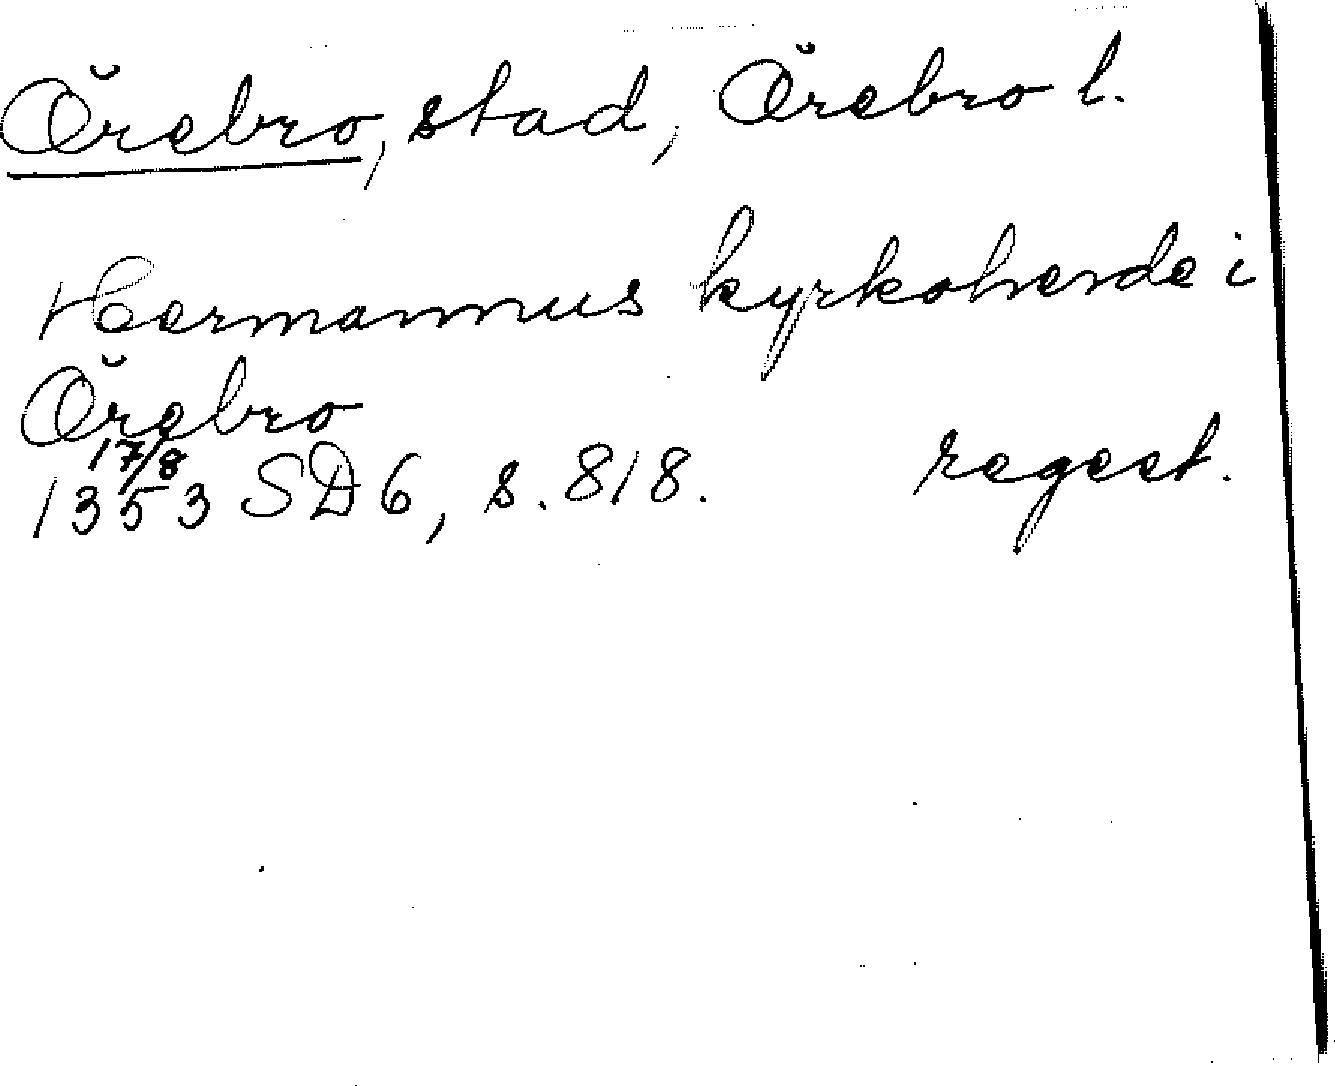 Örebro, stad, Örebro l.
Hermannus kyrkoherde i
Örebro
17/8
1353 SD 6, s. 818. regest.